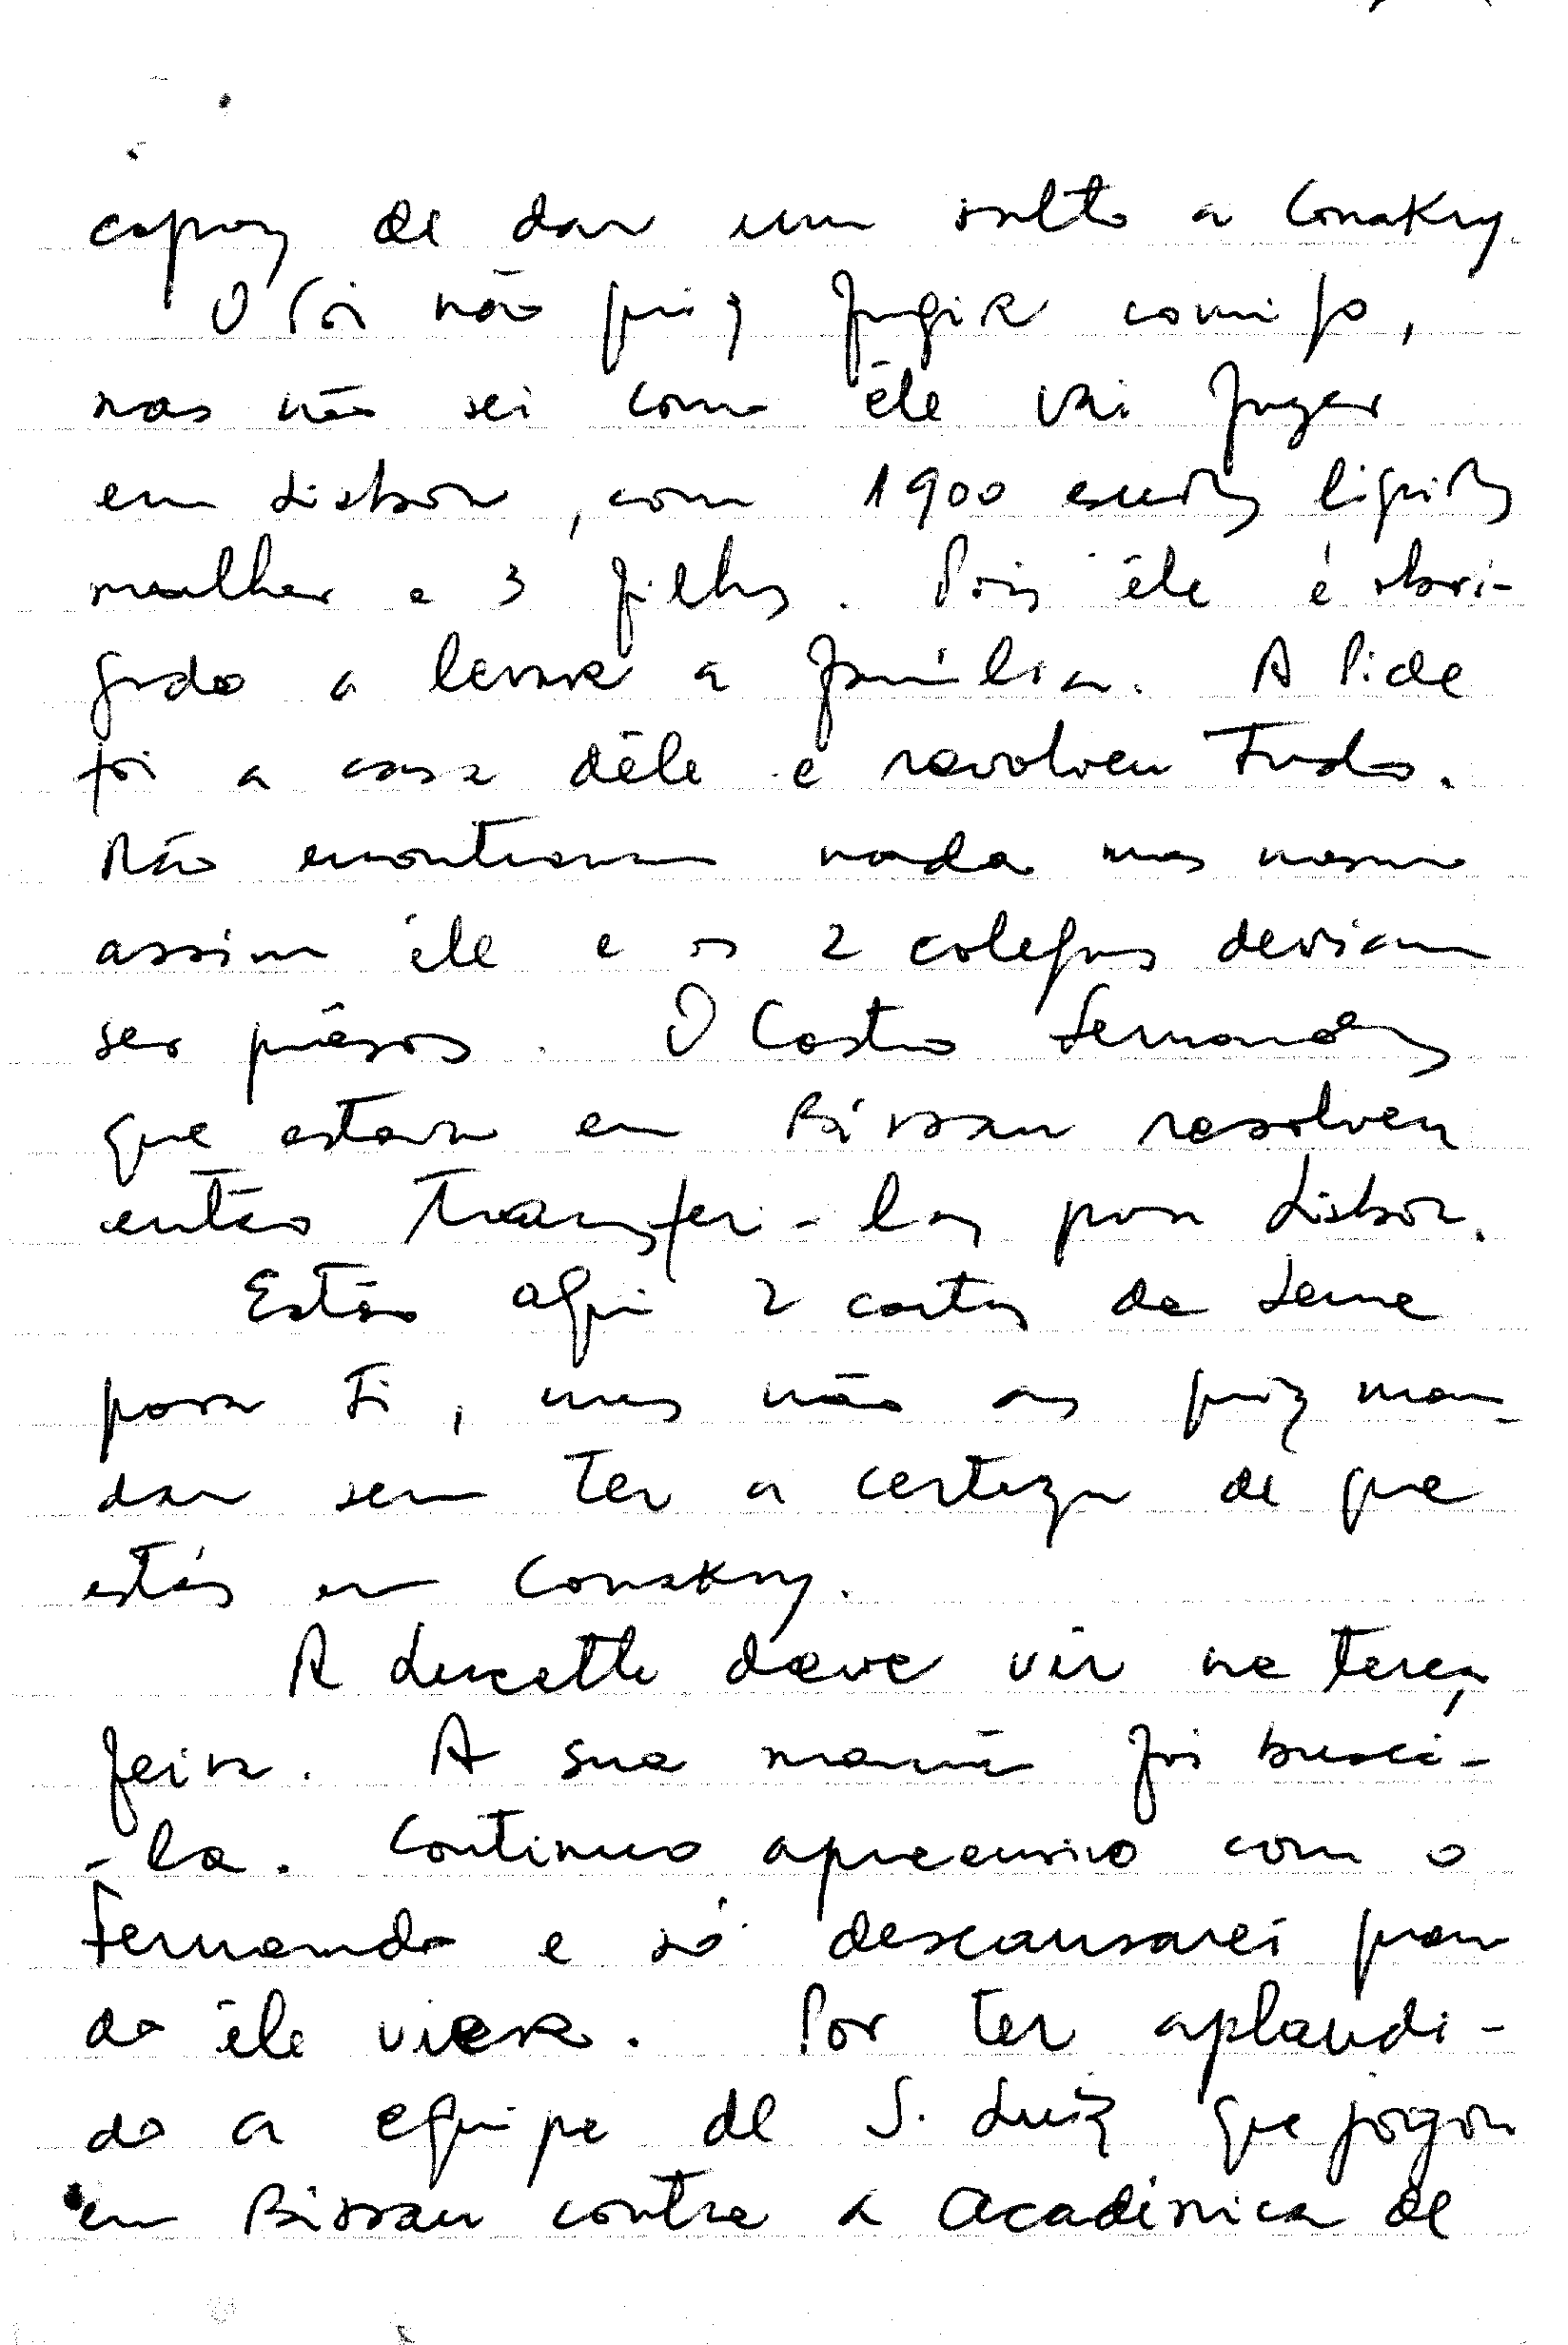 capaz de dar um salto a Conakry.
O não quiz fugir comigo,
mas não sei como êle vai fugir
em Lisboa, com 1900 escudos líquidos
mulher e 3 filhos. Pois êle é obri-
gado a levar a família. A Pide
foi a casa dêle e revolveu tudo.
Não encontraram nada mas mesmo
assim êle e os 2 colegas deviam
ser prêsos. O Castro Fernandes
que estava em Bissau resolveu
então transferi-los para Lisboa.
Estão aqui 2 cartas da Leme
para ti, mas não as quiz man-
dar sem ter a certeza de que
estás em Conakry.
A Lucette deve vir na terça
feira. A sua mamã foi buscá-
-la. Continuo apreensivo com o
Fernando e só descansarei quan
do êle vier. Por ter aplaudi-
do a equipe de S. Luiz que jogou
em Bissau contra a Académica de